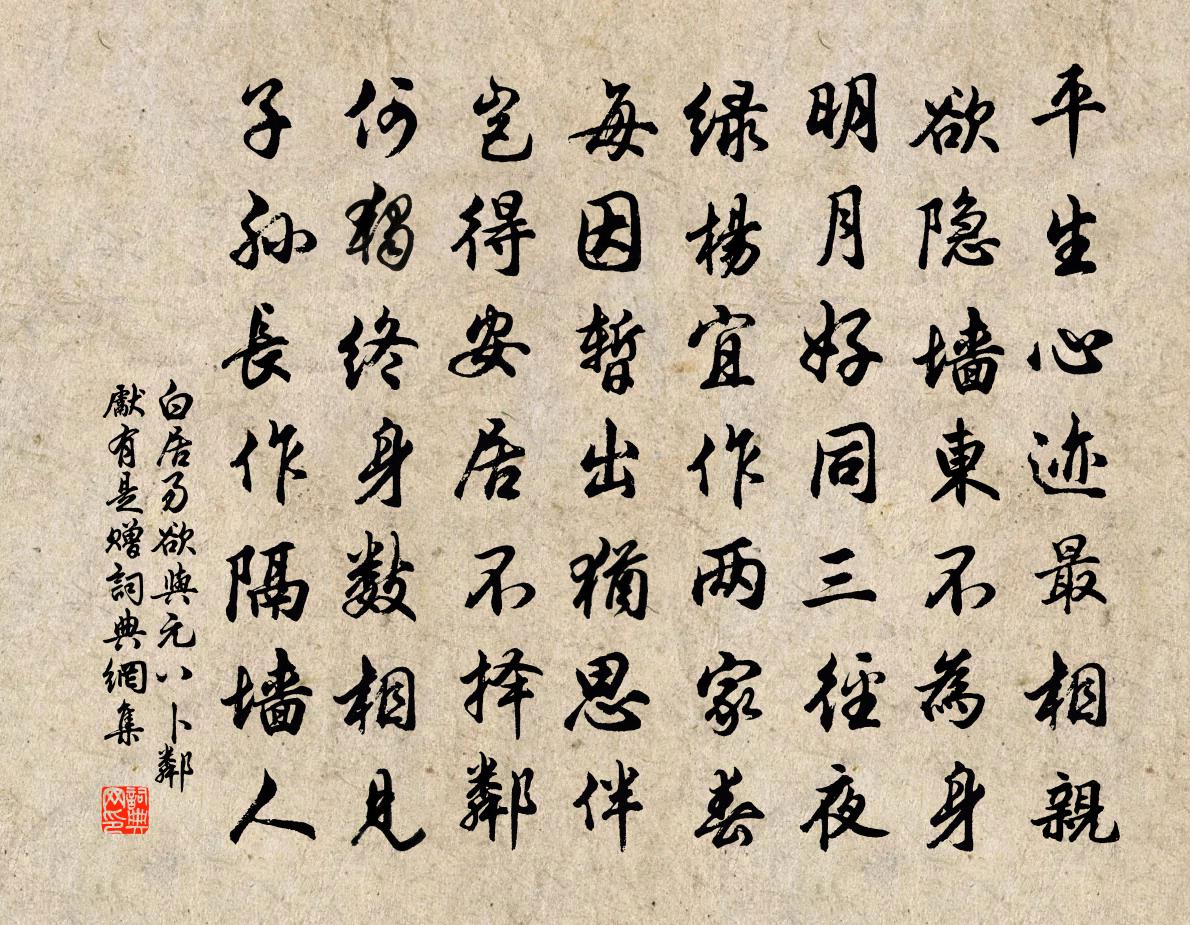 平生心迹最相親
欲隐墙東不為身
明月好同三徑夜
绿楊宜作两家春
每因暫出猶思伴
豈得安居不择鄰
何獨终身數相見
子孫長作隔墙人
白居易欲與元八卜鄰
獻有是贈詞典網集
詞典网印